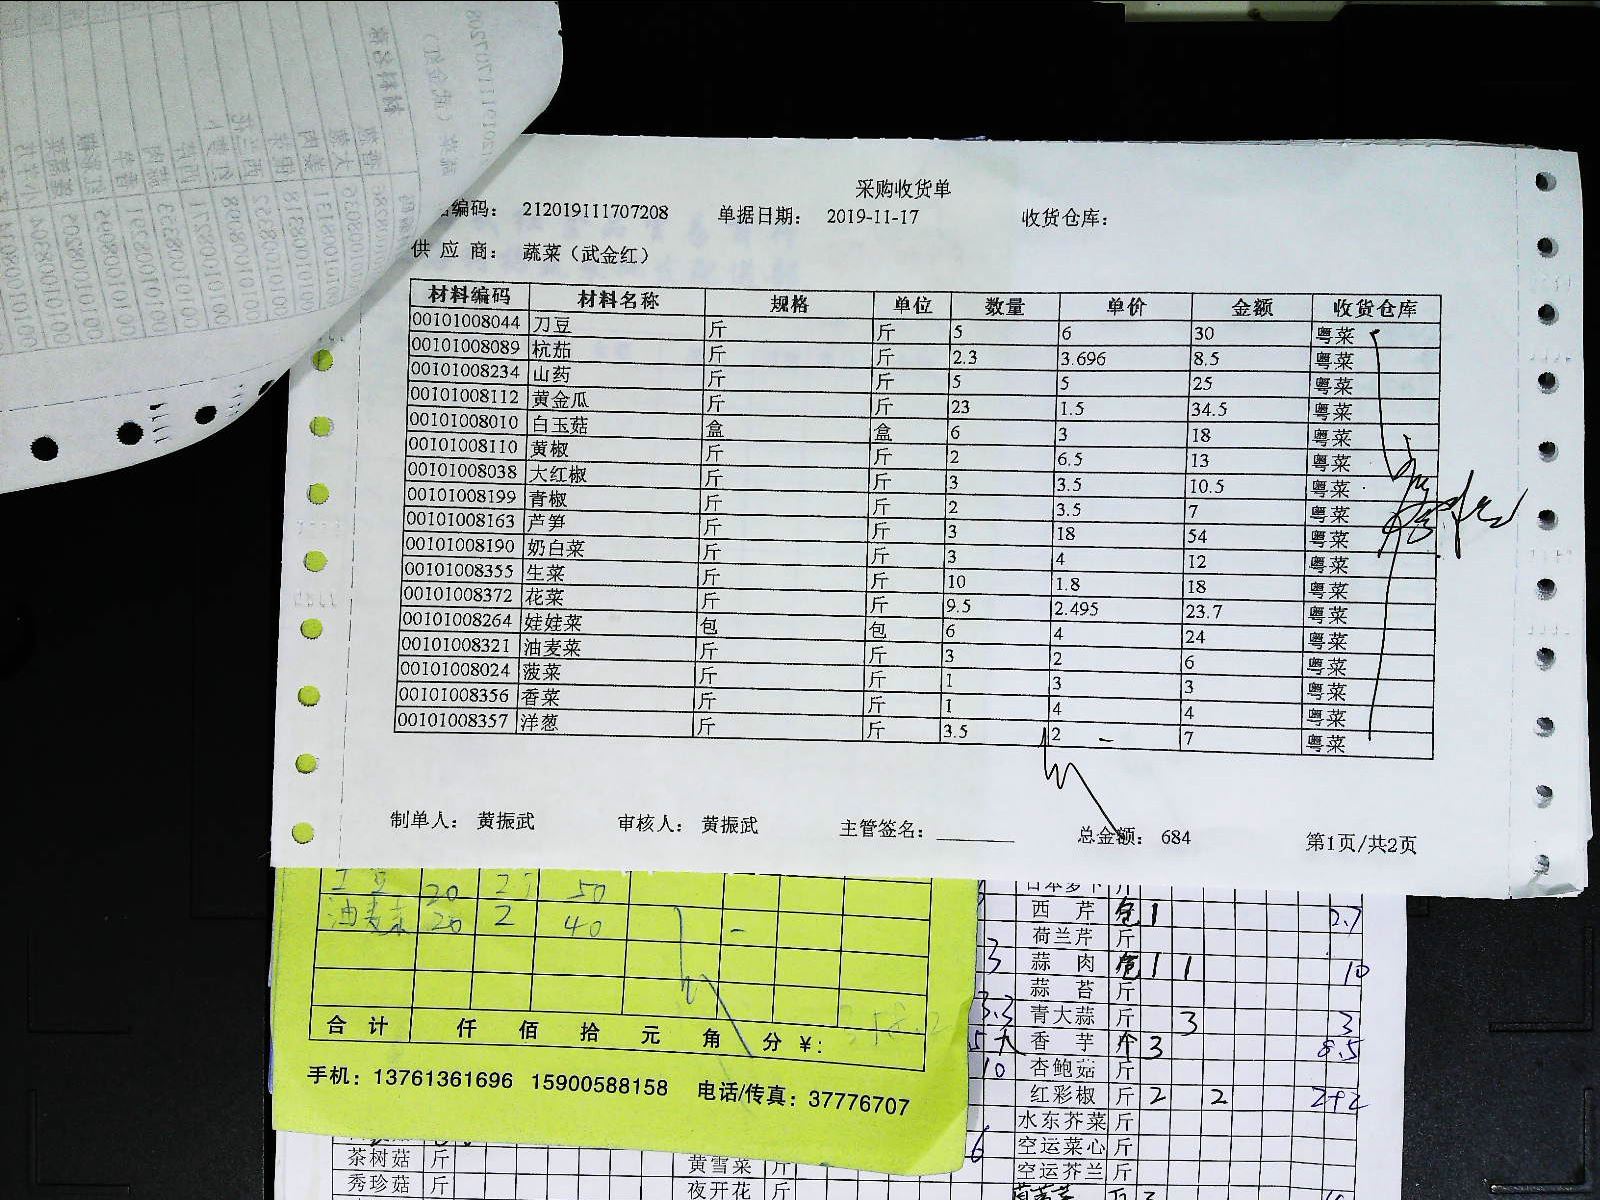 采购收货单
编码： 212019111707208 单据日期： 2019-11-17 收货仓库：
供 应 商： 蔬菜（武金红）
材料编码 材料名称 规格 单位 数量 单价 金额 收货仓库
00101008044 刀豆 斤 斤 5 6 30 粤菜
00101008089 杭茄 斤 斤 2.3 3.696 8.5 粤菜
00101008234 山药 斤 斤 5 5 25 粤菜
00101008112 黄金瓜 斤 斤 23 1.5 34.5 粤菜
00101008010 白玉菇 盒 盒 6 3 18 粤菜
00101008110 黄椒 斤 斤 2 6.5 13 粤菜
00101008038 大红椒 斤 斤 3 3.5 10.5 粤菜
00101008199 青椒 斤 斤 2 3.5 7 粤菜
00101008163 芦笋 斤 斤 3 18 54 粤菜
00101008190 奶白菜 斤 斤 3 4 12 粤菜
00101008355 生菜 斤 斤 10 1.8 18 粤菜
00101008372 花菜 斤 斤 9.5 2.495 23.7 粤菜
00101008264 娃娃菜 包 包 6 4 24 粤菜
00101008321 油麦菜 斤 斤 3 2 6 粤菜
00101008024 菠菜 斤 斤 1 3 3 粤菜
00101008356 香菜 斤 斤 1 4 4 粤菜
00101008357 洋葱 斤 斤 3.5 2 7 粤菜
制单人： 黄振武 审核人： 黄振武 主管签名： 总金额： 684 第1页/共2页
20 50
油麦菜 20 2 40
合 计 仟 佰 拾 元 角 分 ¥:
手机：13761361696 15900588158 电话/传真：37776707
日本萝卜 斤
西 芹 1 2.7
荷兰芹 斤
3 蒜 肉 1 1 10
蒜 苔 斤
3.3 青大蒜 斤 3 3
香 芋 3 8.5
10 杏鲍菇 斤
红彩椒 斤 2 2 2+2
水东芥菜 斤
6 空运菜心 斤
空运芥兰 斤
茶树菇 斤 黄雪菜 斤
秀珍菇 斤 夜开花 斤